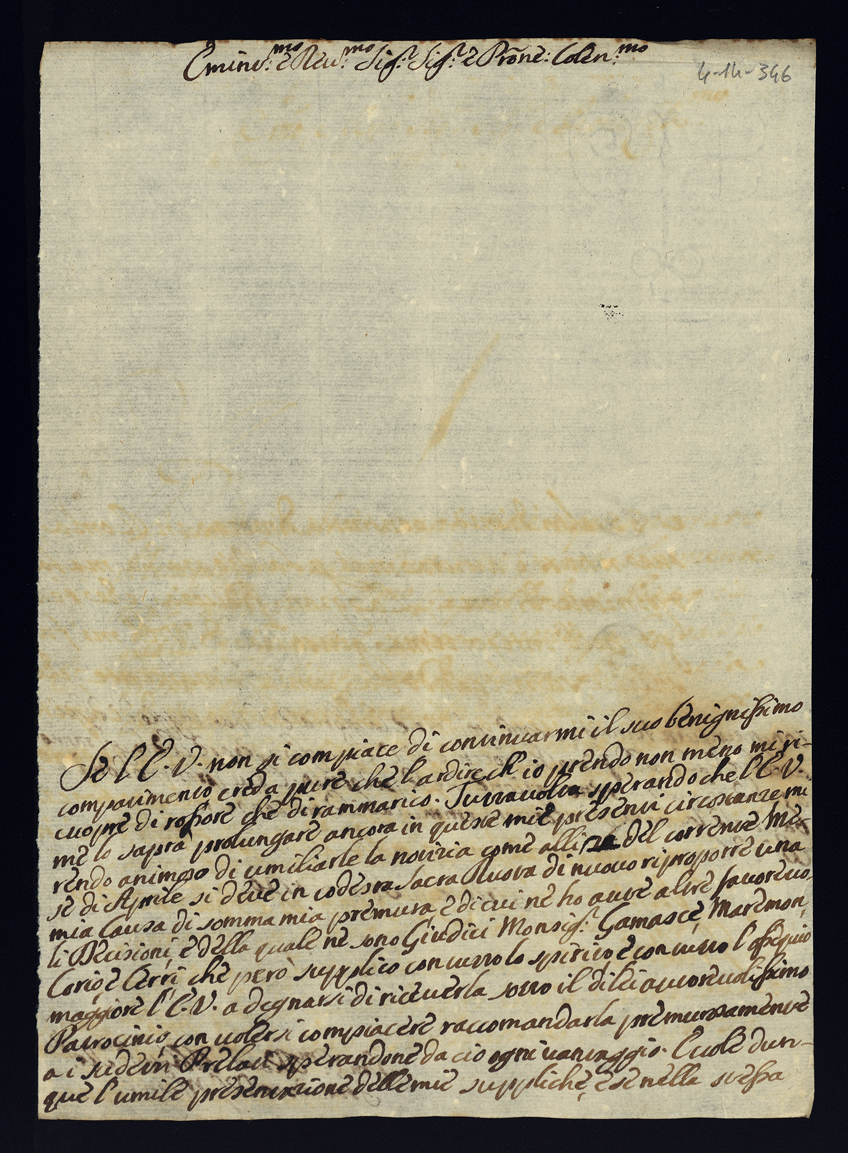 Emin:mo e Reu:mo Sig:r Sig:r e Prõne: Colen:mo
4-14-346
Se l'E.V. non si compiace di continuarmi il suo benignissimo
compatimento creda pure che l'ardire ch'io prendo non meno mi ri-
cuopre di rossore che di rammarico. Tuttauolta sperando che l'E.V.
me lo saprà prolungare ancora in queste mie presenti circostanze mi
rendo animoso di umiliarle la notizia come alli del corrente Me-
se di Aprile si deue in codesta Sacra Ruota di nuouo riproporre una
mia Causa di somma mia premura, e di cui ne ho aute altre fauoreuo-
li Decisioni, e della quale ne sono Giudici Monsig:r Gamasce, Maremon,
Corio e Cerri che però supplico con tutto lo spirito e con tutto l'ossequio
maggiore l'E.V. a degnarsi di riceuerla sotto il di lei autoreuolissimo
Patrocinio, con uolersi compiacere raccomandarla premurosamente
a i sudetti Prelati sperandone da ciò ogni uantaggio. Euole dun-
que l'umile presentazione delle mie suppliche, e se nella stessa